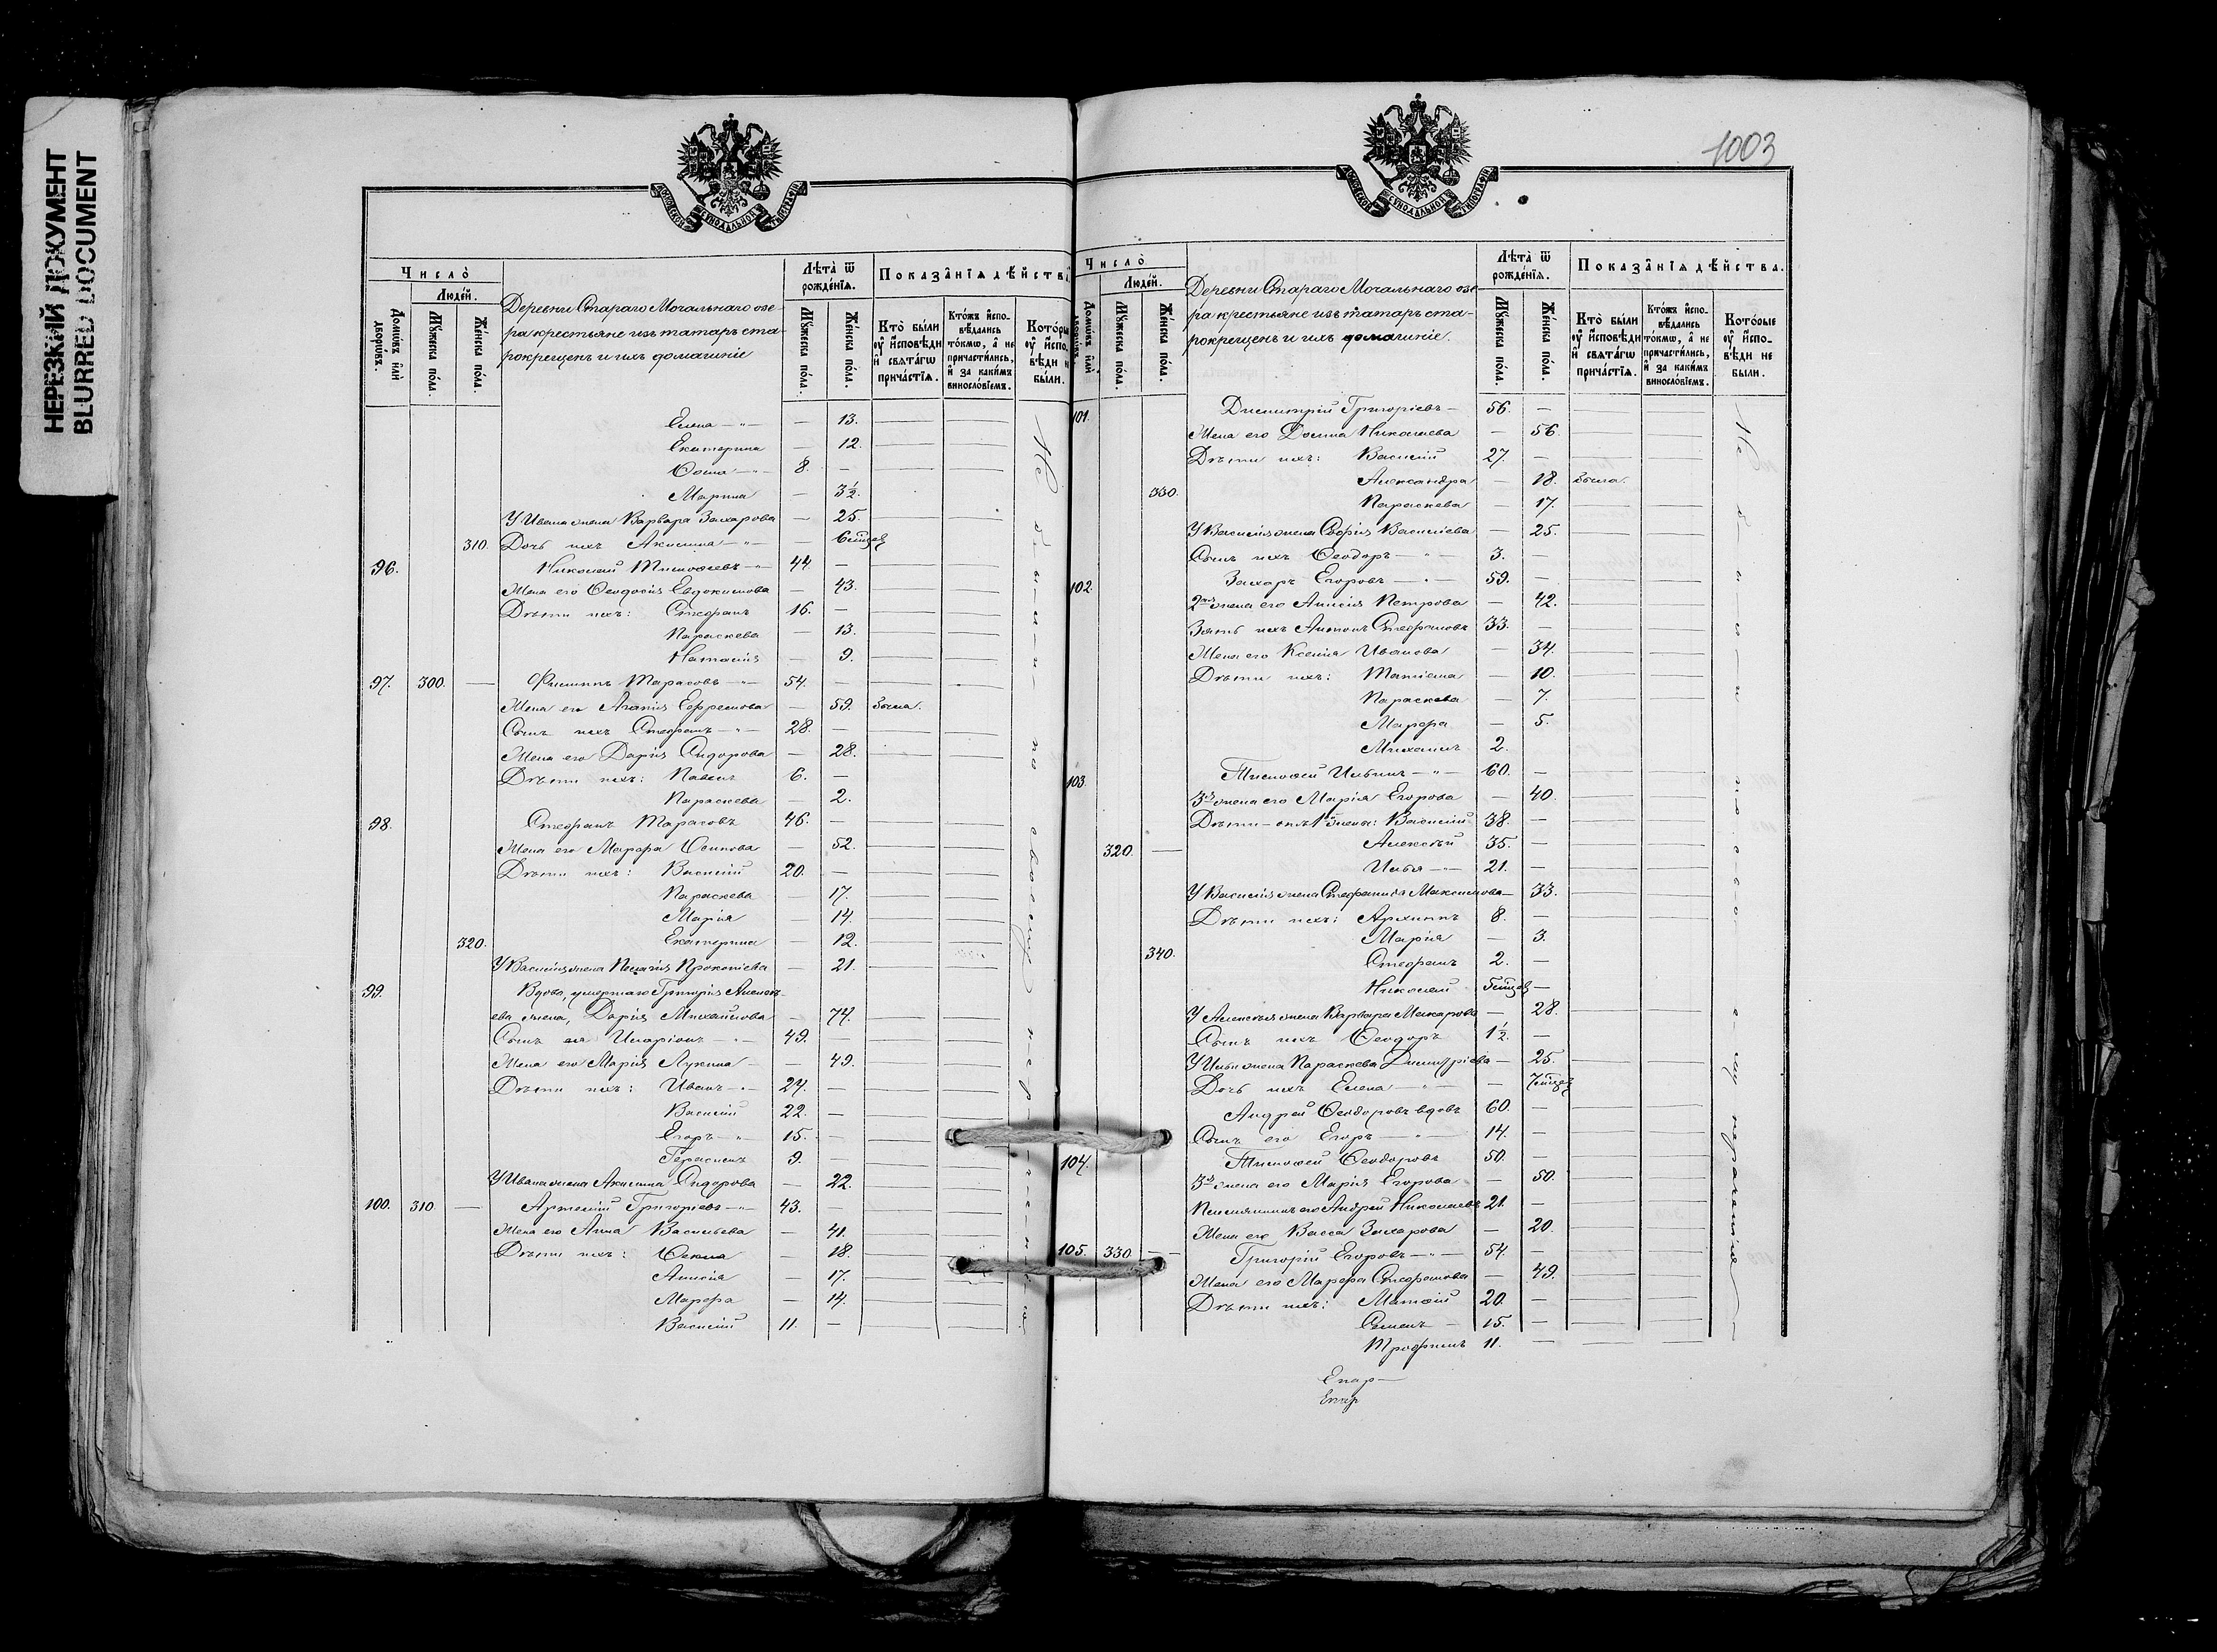 НЕРЕЗКИЙ ДОКУМЕНТ
BLURRED DOCUMENT
МОСКОВСКОЙ СѴНОДАЛЬНОЙ ТѴПОГРАФІИ
Число̀
Люде́й.
Домѡ́въ и҆лѝ дворѡ́въ.
Мꙋ́жеска по́ла.
Же́нска по́ла.
Деревни Стараго Мочальнаго озе-
ра крестьяне изъ татаръ ста-
рокрещенъ и ихъ домашніе
Лѣта̀ ѿ рожде́нїѧ.
Мꙋ́жеска по́ла.
Же́нска по́ла.
Показа̑нїѧ дѣ́йства
Кто̀ бы́ли оу҆ и҆сповѣ́ди и҆ свѧта́гѡ прича́стїѧ.
Кто́жъ и҆спо-вѣ́дались то́кмѡ, а҆ не причасти́лись, и҆ за каки́мъ винослові́емъ.
Кото́рые оу҆ и҆спо-вѣ́ди не бы́ли.
Елена — " — — 13.
Екатерина — 12.
Ѳома — " — 8. —
Марина — 3½.
У Ивана жена Варвара Захарова — 25.
310. Дочь ихъ Акилина — " — — 6 мѣсяц
96. Николай Тимоѳеевъ — " — 44. —
Жена его Ѳеодосія Евдокимова — 43.
Дѣти ихъ: Стефанъ 16. —
Параскева — 13.
Наталія — 9.
97. 300. — Филиппъ Тарасовъ — " — 54. —
Жена его Агапія Ефремова — 59. была.
Сынъ ихъ Стефанъ — " — 28. —
Жена его Дарія Сидорова — 28.
Дѣти ихъ: Павелъ 6. —
Параскева — 2.
98. Стефанъ Тарасовъ 46. —
Жена его Марфа Осипова — 52.
Дѣти ихъ: Василій 20. —
Параскева — 17.
Марія — 14.
320. Екатерина — 12.
У Василія жена Пелагія Прокопіева — 21.
99. Вдова, умершаго Григорія Алексѣ-
ева жена, Дарія Михайлова — 74.
Сынъ ея Иларіонъ — " — 49. —
Жена его Марія Лукина — 49.
Дѣти ихъ: Иванъ — " — 24. —
Василій 22. —
Егоръ — " — 15. —
Герасимъ 9. —
У Ивана жена Акилина Сидорова — 22.
100. 310. — Артемій Григорьевъ — " — 43. —
Жена его Анна Васильева — 41.
Дѣти ихъ: — 18.
Анисія — 17.
Марфа — 14.
Василій 11. —
Не были по своему нерачению
1003
МОСКОВСКОЙ СѴНОДАЛЬНОЙ ТѴПОГРАФІИ
Число̀
Люде́й.
Домѡ́въ и҆лѝ дворѡ́въ.
Мꙋ́жеска по́ла.
Же́нска по́ла.
Деревни Стараго Мочальнаго озе-
ра крестьяне изъ татаръ ста-
рокрещенъ и ихъ домашніе.
Лѣта̀ ѿ рожде́нїѧ.
Мꙋ́жеска по́ла.
Же́нска по́ла.
Показа̑нїѧ дѣ́йства.
Кто̀ бы́ли оу҆ и҆сповѣ́ди и҆ свѧта́гѡ прича́стїѧ.
Кто́жъ и҆спо-вѣ́дались то́кмѡ, а҆ не причасти́лись, и҆ за каки́мъ винослові́емъ.
Кото́рые оу҆ и҆спо-вѣ́ди не бы́ли.
101. Димитрій Григоріевъ — 56. —
Жена его Домна Николаева — 56.
Дѣти ихъ: Василій 27. —
Александра — 18. была.
330. Параскева — 17.
У Василія жена Софія Василіева — 25.
Сынъ ихъ Ѳеодоръ — " — 3. —
102. Захаръ Егоровъ — " — 59. —
2ая жена его Анисія Петрова — 42.
Зять ихъ Антонъ Стефановъ 33. —
Жена его Ксенія Иванова — 34.
Дѣти ихъ: Татіана — 10.
Параскева — 7.
Марфа — 5.
Михаилъ 2. —
103. Тимоѳей Ильинъ — " — 60. —
3я жена его Марія Егорова — 40.
Дѣти отъ 1й жены: Василій 38. —
320. — Алексѣй 35. —
Илья — " — 21. —
У Василія жена Стефанида Максимова — 33.
Дѣти ихъ: Архиппъ 8. —
Марія — 3.
340. Стефанъ 2. —
Николай 5 мѣсяц —
У Алексѣя жена Варвара Макарова — 28.
Сынъ ихъ Ѳеодоръ 1½. —
У Ильи жена Параскева Димитріева — 25.
Дочь ихъ Елена — " — — 7 мѣсяц
Андрей Ѳеодоровъ вдовъ 60. —
Сынъ его Егоръ — " — 14. —
104. Тимоѳей Ѳеодоровъ 50. —
3я жена его Марія Егорова — 50.
Племянникъ его Андрей Николаевъ 21. —
Жена его Васса Захарова — 20.
105. 330. — Григорій Егоровъ — " — 54. —
Жена его Марфа Стефанова — 49.
Дѣти ихъ: Матѳій 20. —
Семенъ — 15. —
Трофимъ 11. —
Не были по своему нерачению